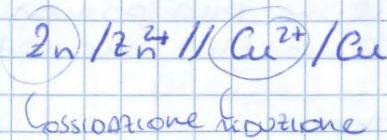 Zn/Zn²⁺//Cu²⁺/Cu
ossidazione riduzione